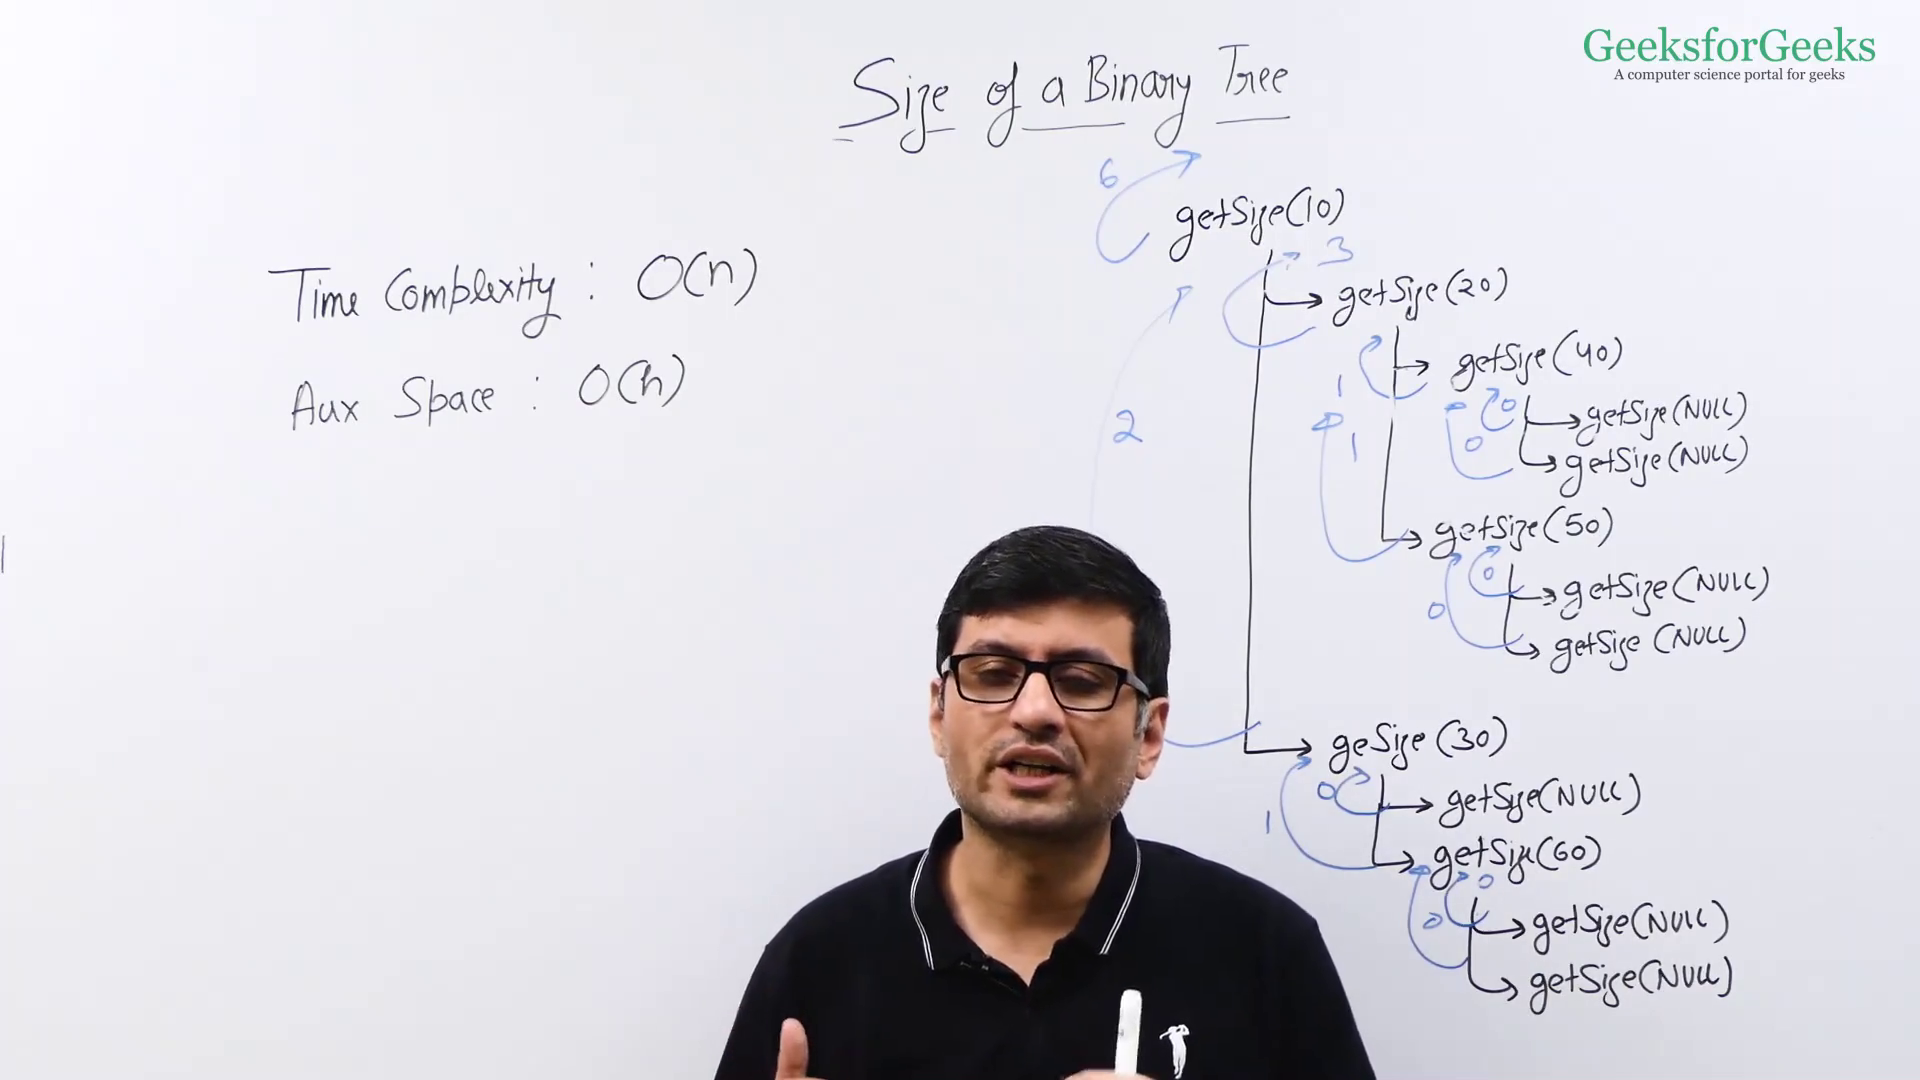 GeeksforGeeks
A computer science portal for geeks
Size of a Binary Tree
6
getSize(10)
3
Time Complexity : O(n)
getSize(20)
getSize(40)
1
Aux Space : O(h)
0
getSize(NULL)
2
1
0
getSize(NULL)
getSize(50)
0
getSize(NULL)
0
getSize (NULL)
geSize (30)
0
getSize(NULL)
1
getSize(60)
0
0
getSize(NULL)
getSize(NULL)